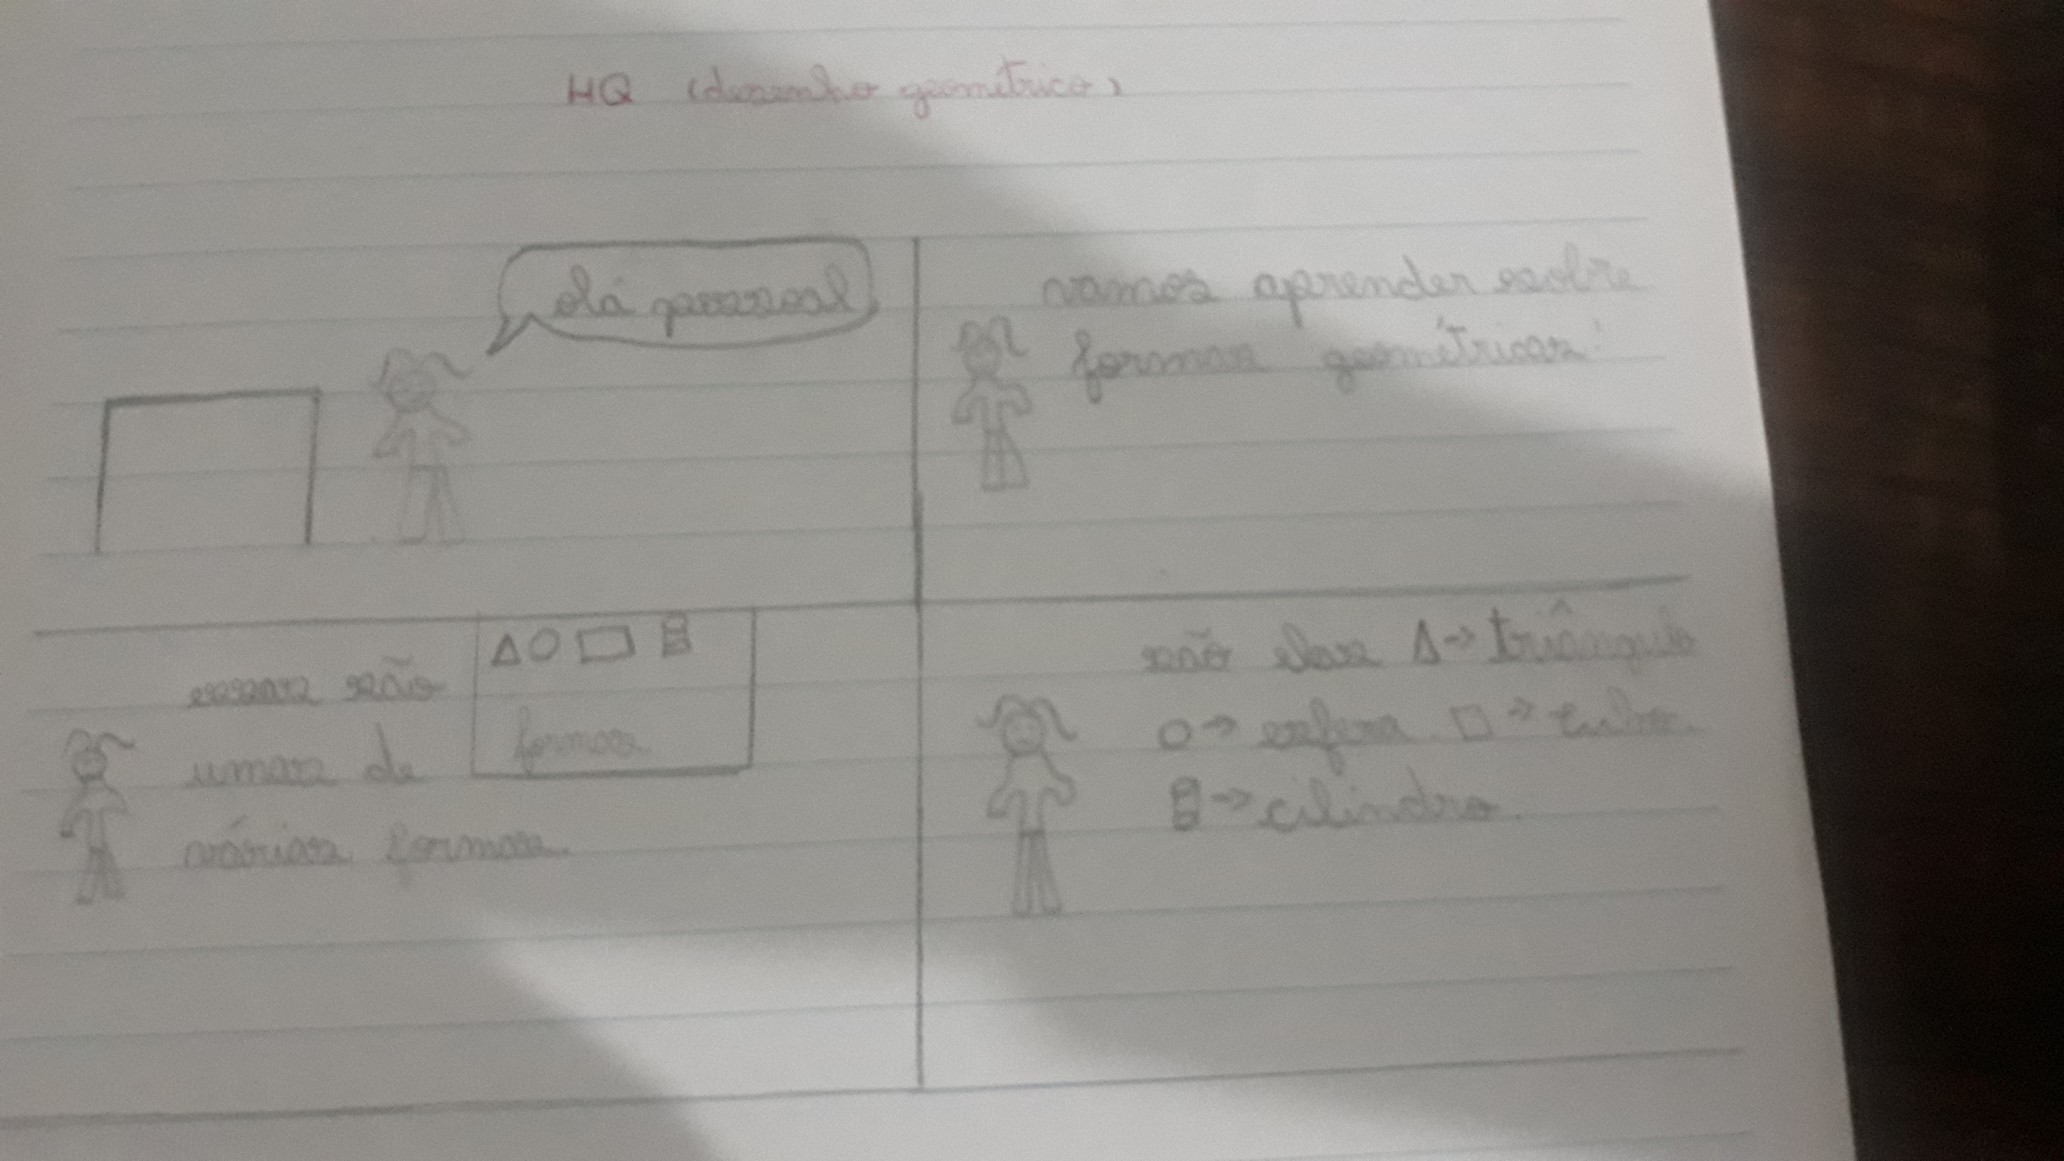 HQ (desenho geométrico)
olá pessoal
vamos aprender sobre
formas geométricas!
essas são
umas de
várias formas.
formas
são elas Δ→ triângulo
○→ esfera. □→ cubo.
→ cilindro.